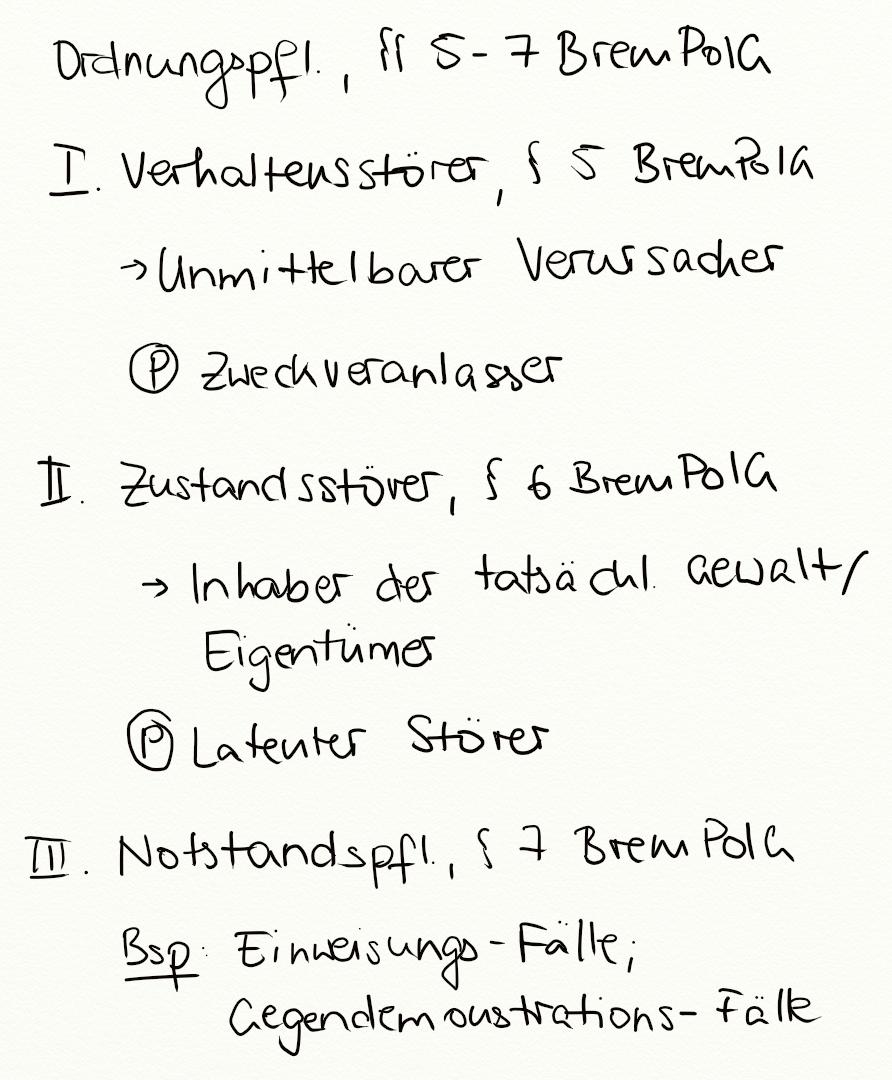 Ordnungspfl., §§ 5-7 BremPolG
I. Verhaltensstörer, § 5 BremPolG
→ Unmittelbarer Verursacher
Ⓟ Zweckveranlasser
II. Zustandsstörer, § 6 BremPolG
→ Inhaber der tatsächl. Gewalt/
Eigentümer
Ⓟ Latenter Störer
III. Notstandspfl., § 7 BremPolG
Bsp: Einweisungs-Fälle;
Gegendemonstrations-Fälle